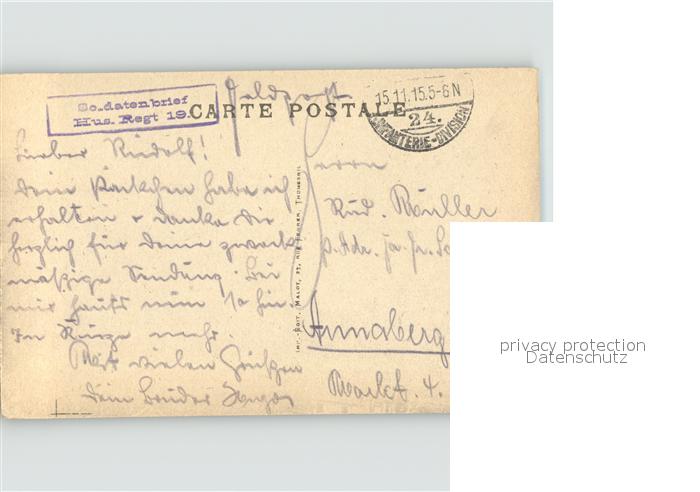 Soldatenbrief
Hus. Regt 19.
Feldpost
CARTE POSTALE
15.11.15.5-6N
24.
INFANTERIE-DIVISION
Lieber Rudolf!
Dein Päckchen habe ich
erhalten + danke Dir
herzlich für deine zweck-
mäßige Sendung. Bei
mir
In Kürze mehr.
Mit vielen Grüßen
dein Bruder
IMP.-EDIT. MALOT, 27, RUE THOMESNIL
Herrn
Rud. Müller
p. Adr.
Annaberg
Markt. 4.
privacy protection
Datenschutz